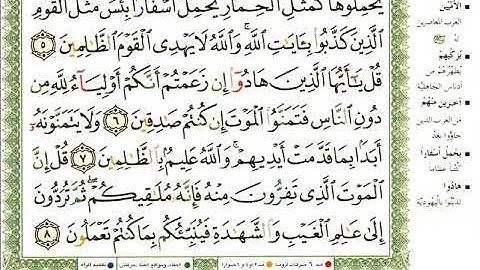 يَحْمِلُوهَا كَمَثَلِ ٱلْحِمَارِ يَحْمِلُ أَسْفَارًۢا بِئْسَ مَثَلُ ٱلْقَوْمِ
ٱلَّذِينَ كَذَّبُوا۟ بِـَٔايَٰتِ ٱللَّهِ وَٱللَّهُ لَا يَهْدِى ٱلْقَوْمَ ٱلظَّٰلِمِينَ
٥ قُلْ يَٰٓأَيُّهَا ٱلَّذِينَ هَادُوٓا۟ إِن زَعَمْتُمْ أَنَّكُمْ أَوْلِيَآءُ لِلَّهِ مِن
دُونِ ٱلنَّاسِ فَتَمَنَّوُا۟ ٱلْمَوْتَ إِن كُنتُمْ صَٰدِقِينَ ٦ وَلَا يَتَمَنَّوْنَهُۥٓ
أَبَدًۢا بِمَا قَدَّمَتْ أَيْدِيهِمْ وَٱللَّهُ عَلِيمٌۢ بِٱلظَّٰلِمِينَ ٧ قُلْ إِنَّ
ٱلْمَوْتَ ٱلَّذِى تَفِرُّونَ مِنْهُ فَإِنَّهُۥ مُلَٰقِيكُمْ ثُمَّ تُرَدُّونَ
إِلَىٰ عَٰلِمِ ٱلْغَيْبِ وَٱلشَّهَٰدَةِ فَيُنَبِّئُكُم بِمَا كُنتُمْ تَعْمَلُونَ ٨
الأميين
العرب المعاصرين
يزكيهم
يطهرهم من
أدناس الجاهلية
آخرين منهم
من العرب الذين
جاؤوا بعد
يحمل أسفارا
كتبا عظاما
هادوا
تدينوا باليهودية